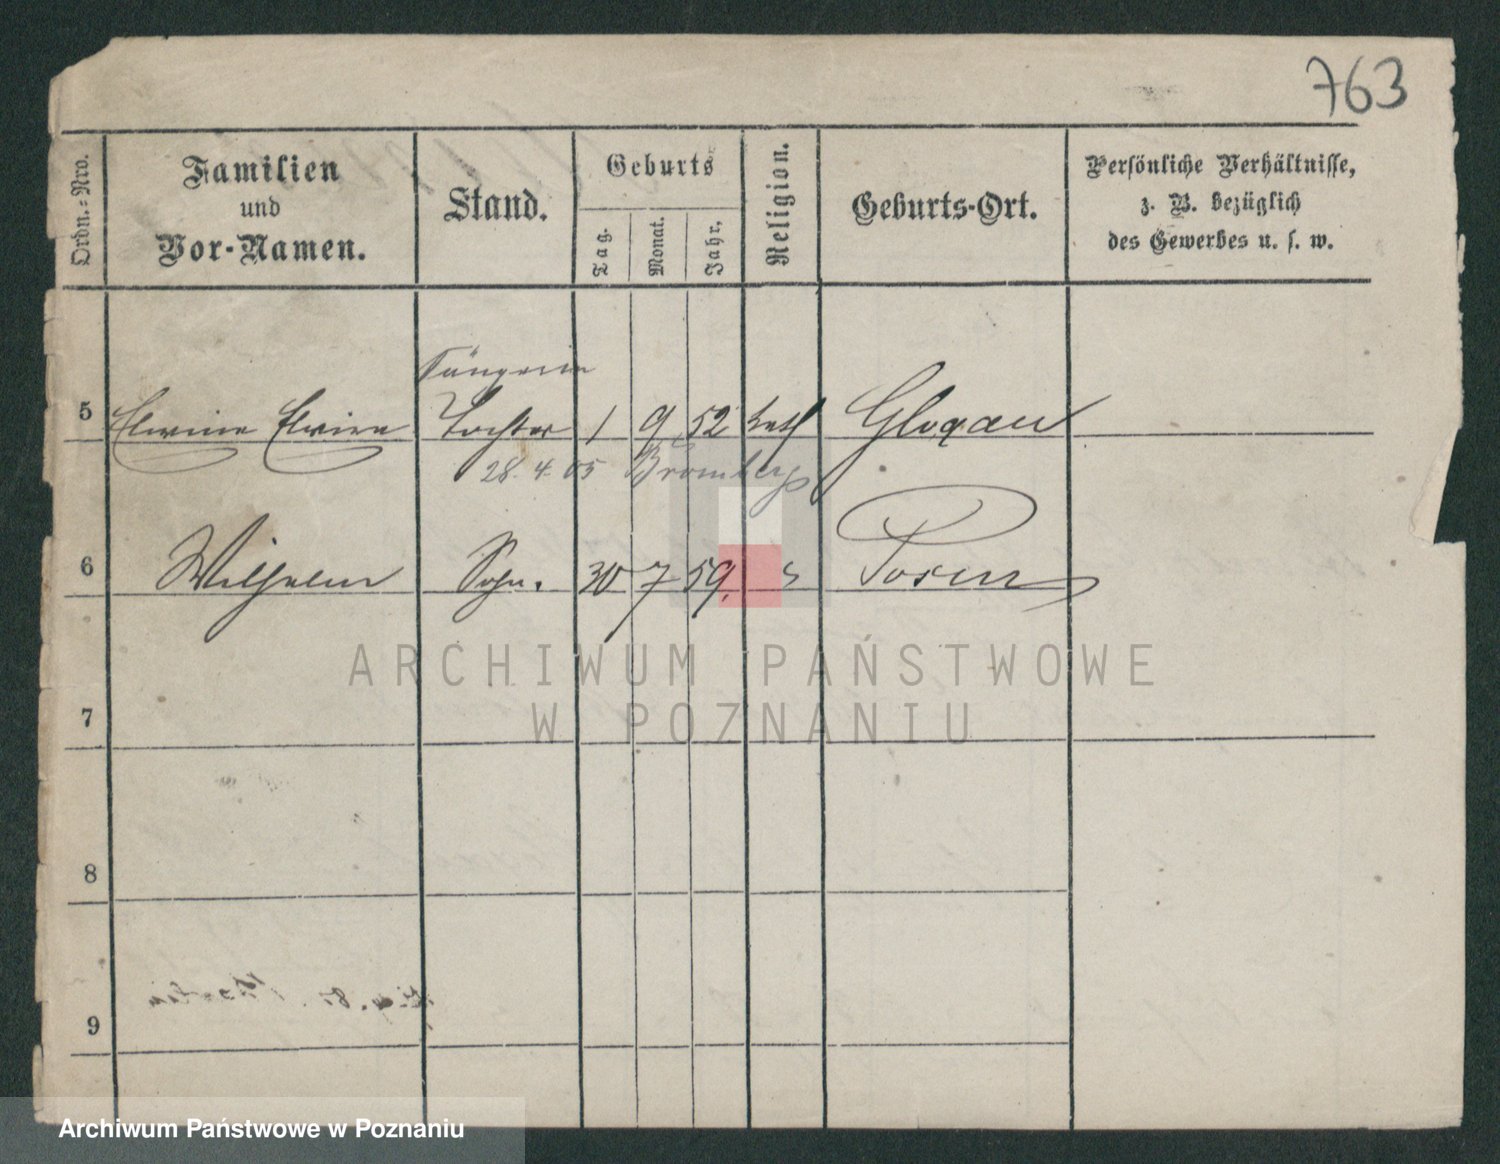 763
Ordn.-Nro.
Familien
und
Vor-Namen.
Stand.
Geburts
Tag.
Monat.
Jahr.
Religion.
Geburts-Ort.
Persönliche Verhältnisse,
z. B. bezüglich
des Gewerbes u. s. w.
Sängerin
5 Elvira Tochter 1 9 52 kath Glogau
28. 4. 05 Bromberg
6 Wilhelm Sohn. 30 7 59. Posen
7
8
9
ARCHIWUM PAŃSTWOWE
W POZNANIU
Archiwum Państwowe w Poznaniu